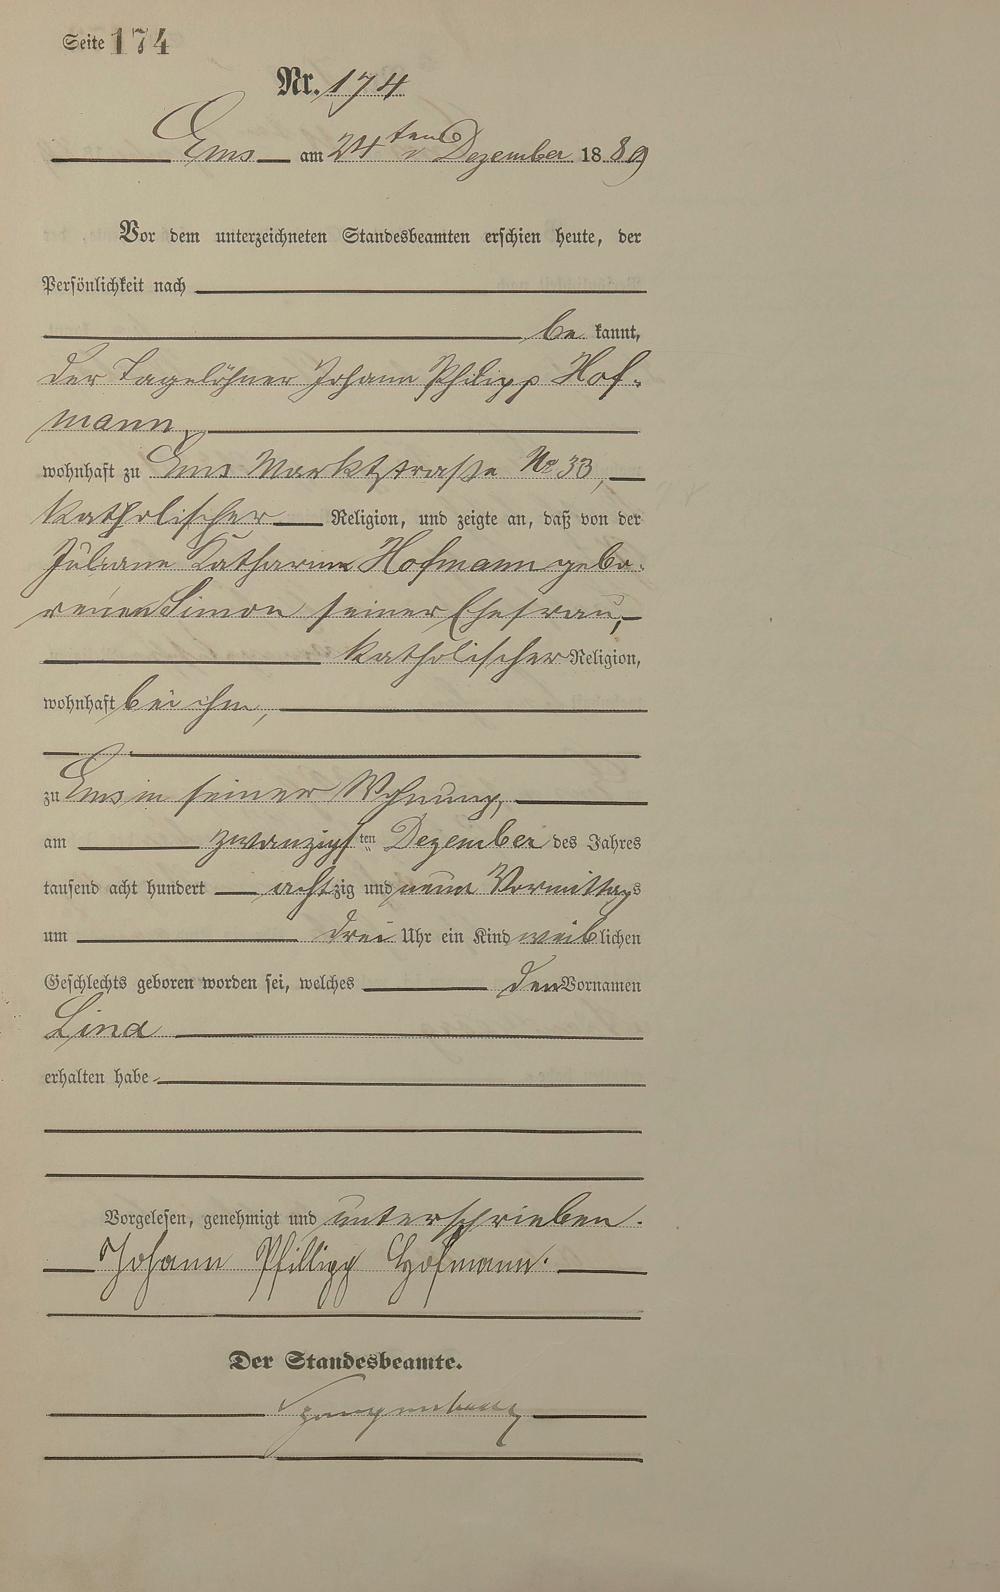 Seite 174
Nr. 174
Ems am 24ten Dezember 1889
Vor dem unterzeichneten Standesbeamten erschien heute, der
Persönlichkeit nach
be kannt,
der Tagelöhner Johann Philipp Hof-
mann,
wohnhaft zu Ems Marktstraße No 33,
katholischer Religion, und zeigte an, daß von der
Juliane Katharina Hofmann gebo-
renen Simon seiner Ehefrau,
katholischer Religion,
wohnhaft bei ihm,
zu Ems in seiner Wohnung,
am zwanzigsten Dezember des Jahres
tausend acht hundert achtzig und neun Vormittags
um drei Uhr ein Kind weiblichen
Geschlechts geboren worden sei, welches den Vornamen
Lina
erhalten habe
Vorgelesen, genehmigt und unterschrieben.
Johann Phillipp Hofmann.
Der Standesbeamte.